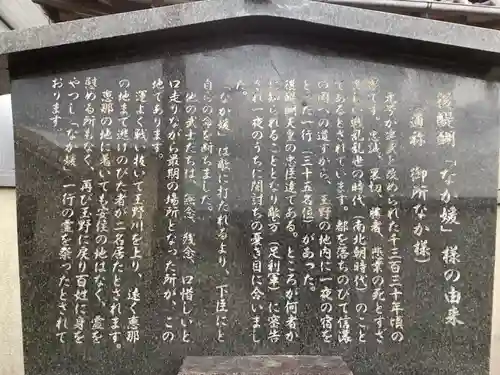 後醍醐「なか媛」様の由来
(通称 御所なか様)
元享が建武と改められた千三百三十年頃の
とです。忠誠、裏切、勝者、敗者の死とすさ
まじい戦乱乱世の時代(南北朝時代)のこと
であるとされています。都を落ちのびて信濃
の国への道すがら、王野の地内に一夜の宿を
とった一行(三十五名位)があった。
後醍醐天皇の忠臣達である。ところが何者か
に知られることとなり敵方(足利軍)に密告
され一夜のうちに闇討ちの憂き目に合いまし
た。
「なか媛」は敵に打たれるより、下臣にと
自らの命を断ちました。
他の武士たちは、無念、残念、口惜しいと
口走りながら最期の場所となった所が、この
地であります。
運よく戦い抜いて王野川を上り、遠く恵那
の地まで逃けのびた者が二名居たとされます。
恵那の地に着いても安住の地はなく、霊を
慰める所もなく、再び王野に戻り百姓に身を
やつし「なか媛」一行の霊を祭ったとされて
おります。